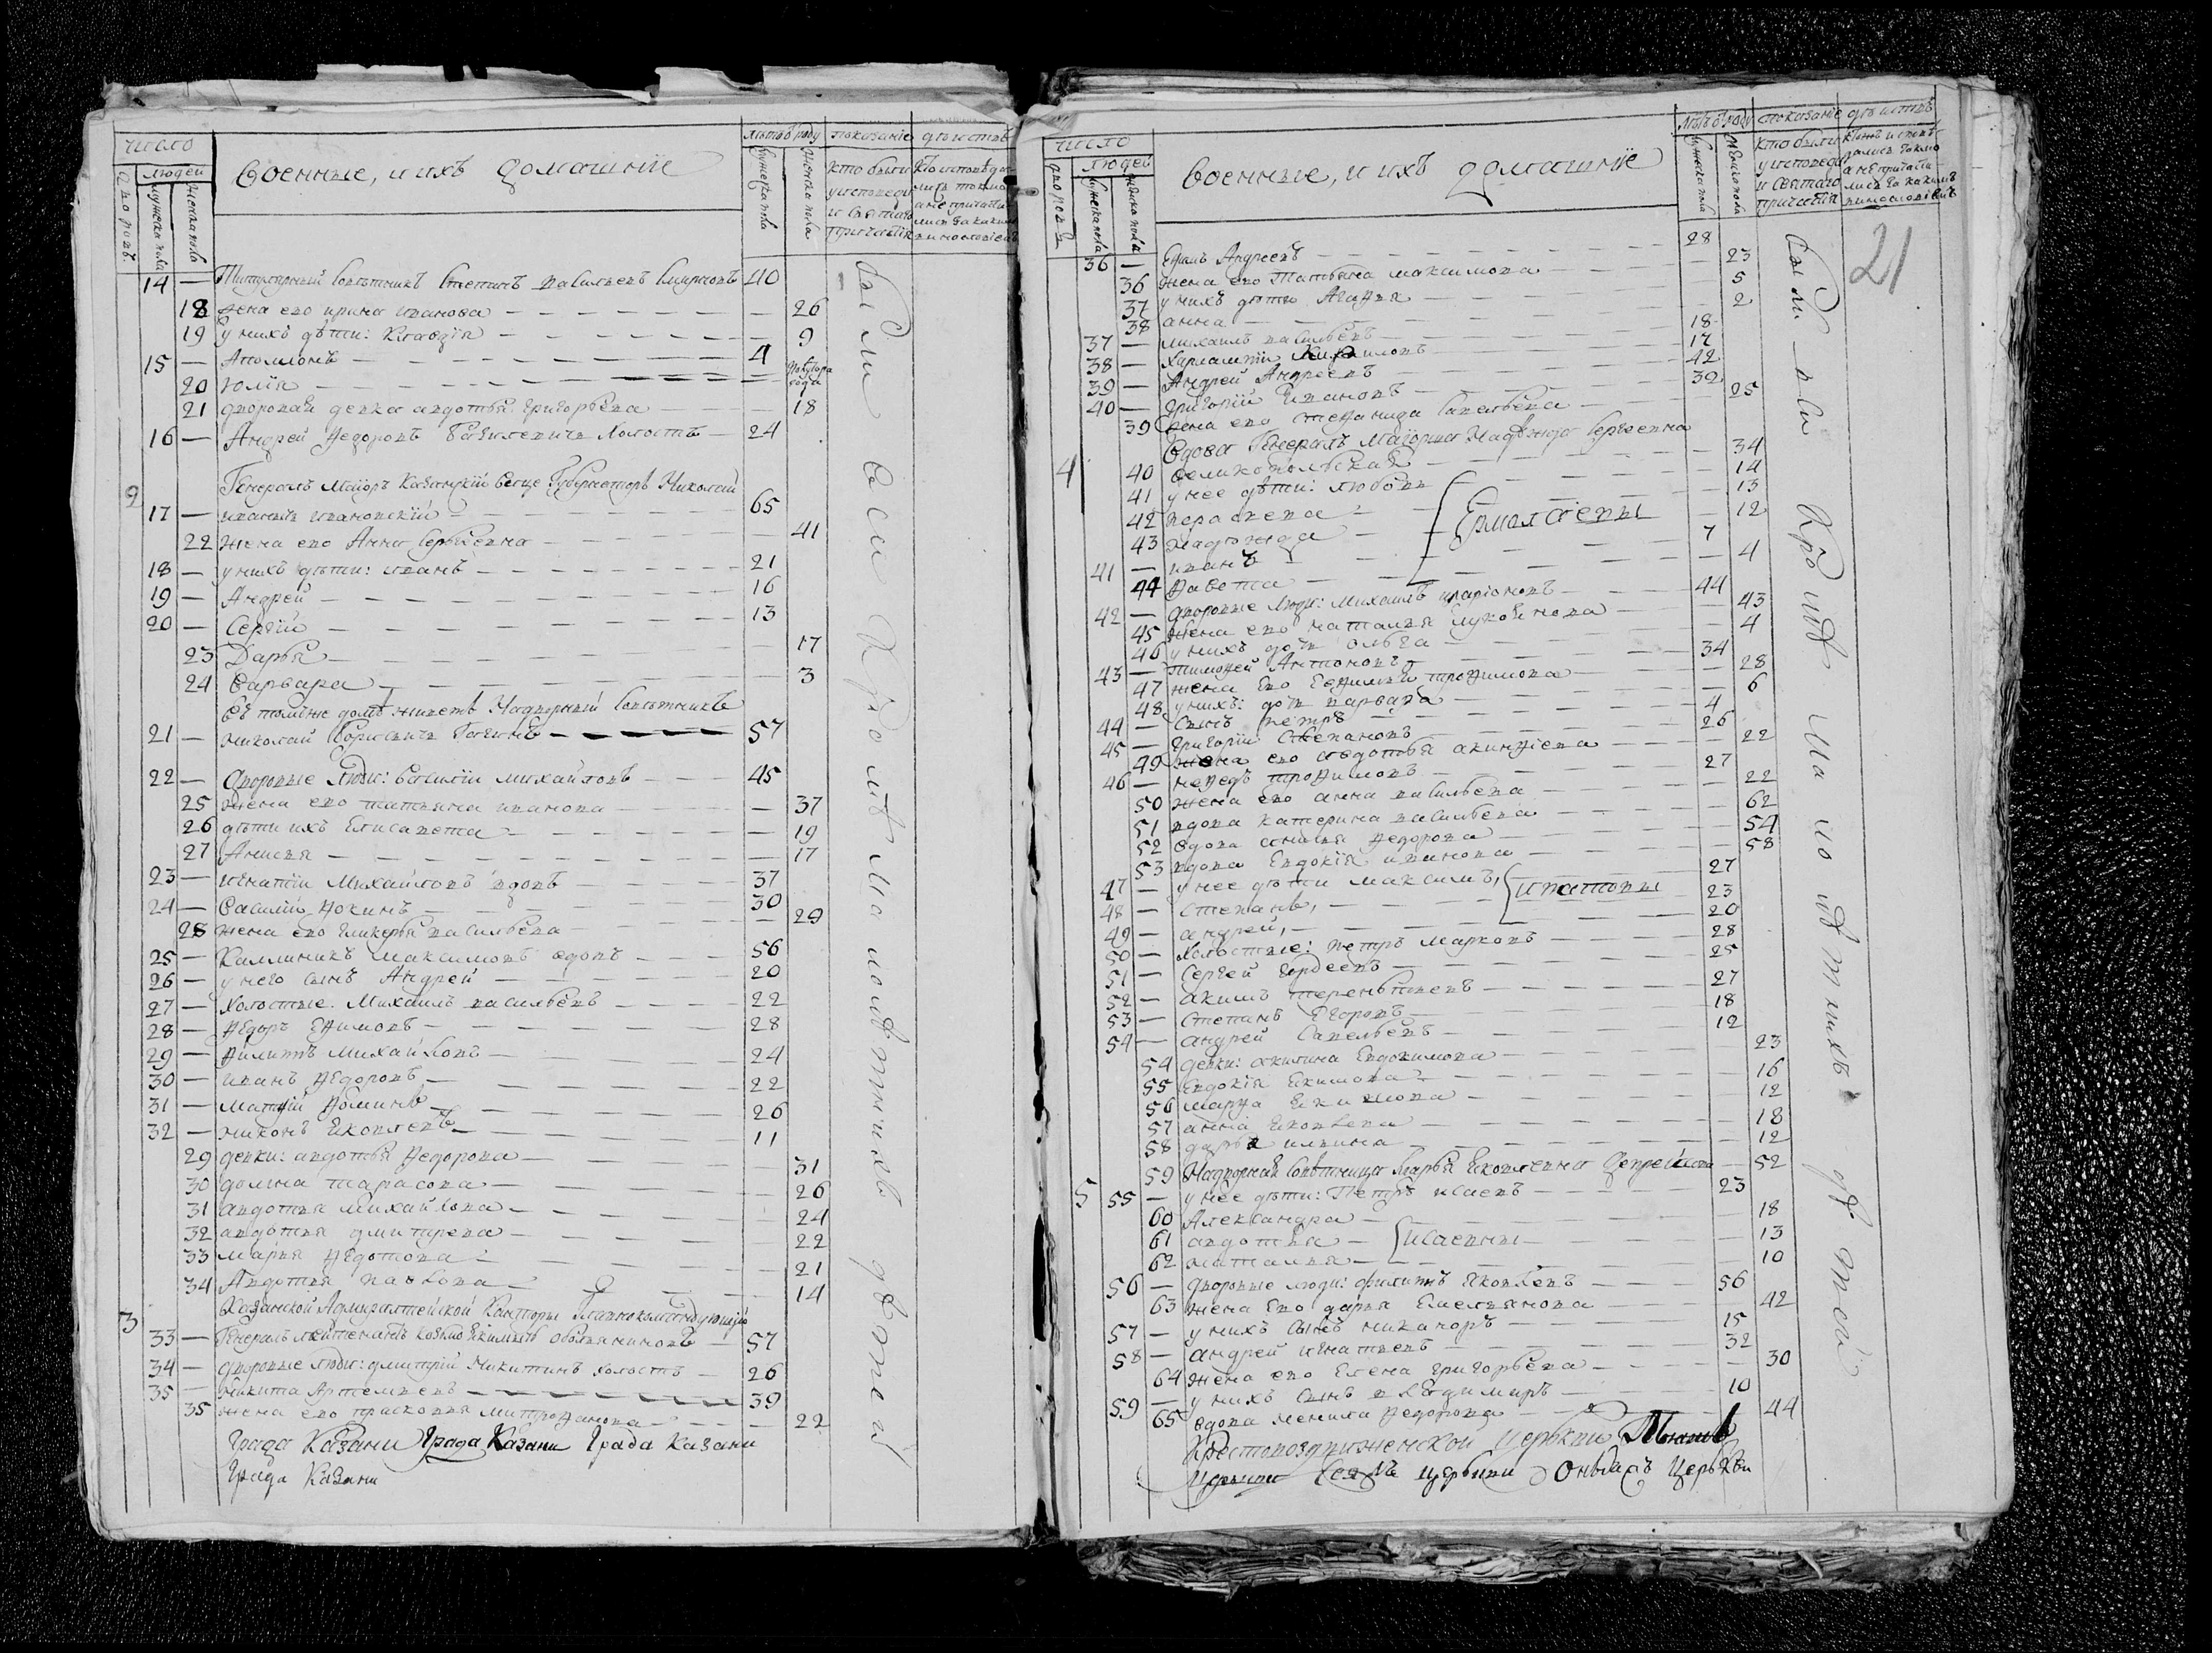 число
людей
дворовъ
мужеска пола
женска пола
Военные, и ихъ домашнїе
лѣтъ отъ роду
мужеска пола
женска пола
показанїе дѣиствъ
кто были у исповеди и святаго причастїя
14 — Титулярный Советникъ Степанъ васильевъ 40
18 жена его ирина иванова — 26
19 у нихъ дѣти: Клавдія — 9
15 — Аполлонъ — 4
20 Юлїя — полтора года
21 дворовая девка авдотья григорьева — 18
16 — Андрей Ѳедоровъ Холостъ — 24
2 Генералъ Маіоръ Казанский Вице Губернаторъ Николай
17 — ивановскїй — 65
22 жена его Анна Сергѣевна — 41
18 — у нихъ дѣти: иванъ — 21
19 — Андрей — 16
20 — Сергїй — 13
23 Дарья — 17
24 Варвара — 3
Въ томъ же домѣ живетъ Надворный Советникъ
21 — николай 57
22 — дворовые Люди: василїи михайловъ — 45
25 жена его татьяна иванова — 37
26 дѣти ихъ Елисавета — 19
27 Анисья — 17
23 — игнатїи Михайловъ вдовъ — 37
24 — василїй Ѳокинъ — 30
28 жена его гликерья васильева — 29
25 — Каллиникъ Максимовъ вдовъ — 56
26 — у него сынъ Андрей — 20
27 — Холостые: Михаилъ васильевъ — 22
28 — Ѳедоръ Еѳимовъ — 28
29 — Ѳилипъ Михайловъ — 24
30 — иванъ Ѳедоровъ — 22
31 — матѳїй Ѳоминъ — 26
32 — никонъ Яковлевъ — 11
29 девки: авдотья Ѳедорова — 31
30 домна тарасова — 26
31 авдотья михайлова — 24
32 авдотья дмитрева — 22
33 марья Ѳедотова — 21
34 Авдотья павлова — 14
3 Казанской Адмиралтейской Канторы Главнокомандующїй
33 — Генералъ лейтенантъ 57
34 — дворовые люди: дмитрїй Никитинъ холостъ — 26
35 — Никита Артемьевъ — 39
35 жена его прасковья митроѳанова — 22
были вси Хромѣ малолѣтнихъ дѣтей
града Казани Града Казани Града Казани
Града Казани
21
число
людей
дворовъ
Военные, и ихъ домашнїе
лѣтъ отъ роду
показанїе дѣиствъ
кто были у исповеди и святаго причастїя
36 — Андреевъ — 28
36 жена его Татьяна максимова — 23
37 у нихъ дѣти Агаѳья — 5
38 анна — 2
37 — михаилъ васильевъ — 18
38 — Харлампїи 17
39 — Андрей Андреевъ — 42
40 — григорїи Ивановъ — 32
39 жена его стеѳанида Савельева — 25
4 Вдова Генералъ Маїорша Надѣжда Сергеевна
40 34
41 у нее дѣти: любовь — 14
42 парасковья — 13
43 надѣжда — 12
41 — иванъ — 7
44 4
42 — дворовые люди: михаилъ иларїоновъ — 44
45 жена его наталья 43
46 у нихъ дочь ольга — 4
43 — тимоѳей Антоновъ — 34
47 жена Его Евѳимья троѳимова — 28
48 у нихъ: дочь варвара — 6
44 — сынъ петръ — 4
45 — григорїи Степановъ — 26
49 жена его ѳедотья акинѳіева — 22
46 — меѳедъ троѳимовъ — 27
50 жена его анна васильева — 22
51 вдова катерина васильева — 62
52 вдова Ѳедорова — 54
53 вдова Евдокїя иванова — 58
47 — у нее дѣти максимъ, Игнатовы 27
48 — степанъ, — 23
49 — андрей, — 20
50 — Холостые: петръ марковъ — 28
51 — Сергей Гордеевъ — 25
52 — акимъ терентьевъ — 27
53 — степанъ Егоровъ — 18
54 — андрей Савельевъ — 12
54 девки: акилина Евдокимова — 23
55 Евдокїя Екимова — 16
56 марѳа Екимова — 12
57 анна Яковлева — 18
58 дарья ильина — 12
5 59 Надворная Советница марья Яковлевна — 52
55 — у нее дѣти: Петръ исаевъ — 23
60 Александра — 18
61 авдотья — исаевны — 13
62 наталья — 10
56 — дворовые люди: филипъ Яковлевъ — 56
63 жена Его дарья Емельянова — 42
57 — у нихъ сынъ никаноръ — 15
58 — андрей игнатьевъ — 32
64 жена его Елена григорьева — 30
59 — у нихъ сынъ владимиръ — 10
65 вдова Ѳедорова — 44
были вси Хромѣ малолѣтнихъ дѣтей
Крестовоздвиженской церькви
церькви